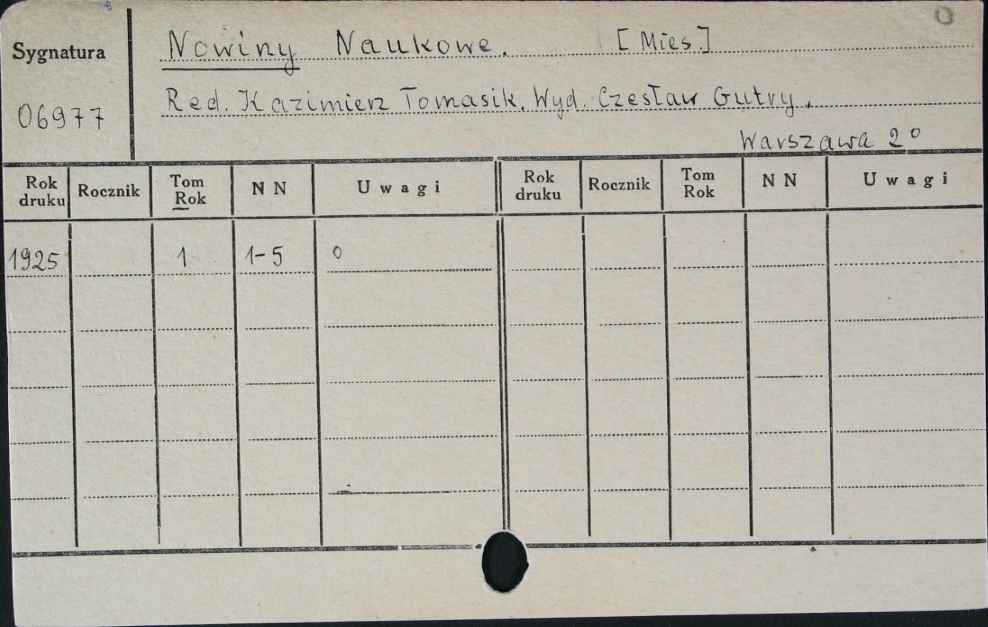 Sygnatura
Nowiny Naukowe. [Mies.]
06977
Red. Kazimierz Tomasik, Wyd. Czesław Gutry.
Warszawa 2°
Rok druku Rocznik Tom Rok N N Uwagi Rok druku Rocznik Tom Rok N N Uwagi
1925 1 1-5 0